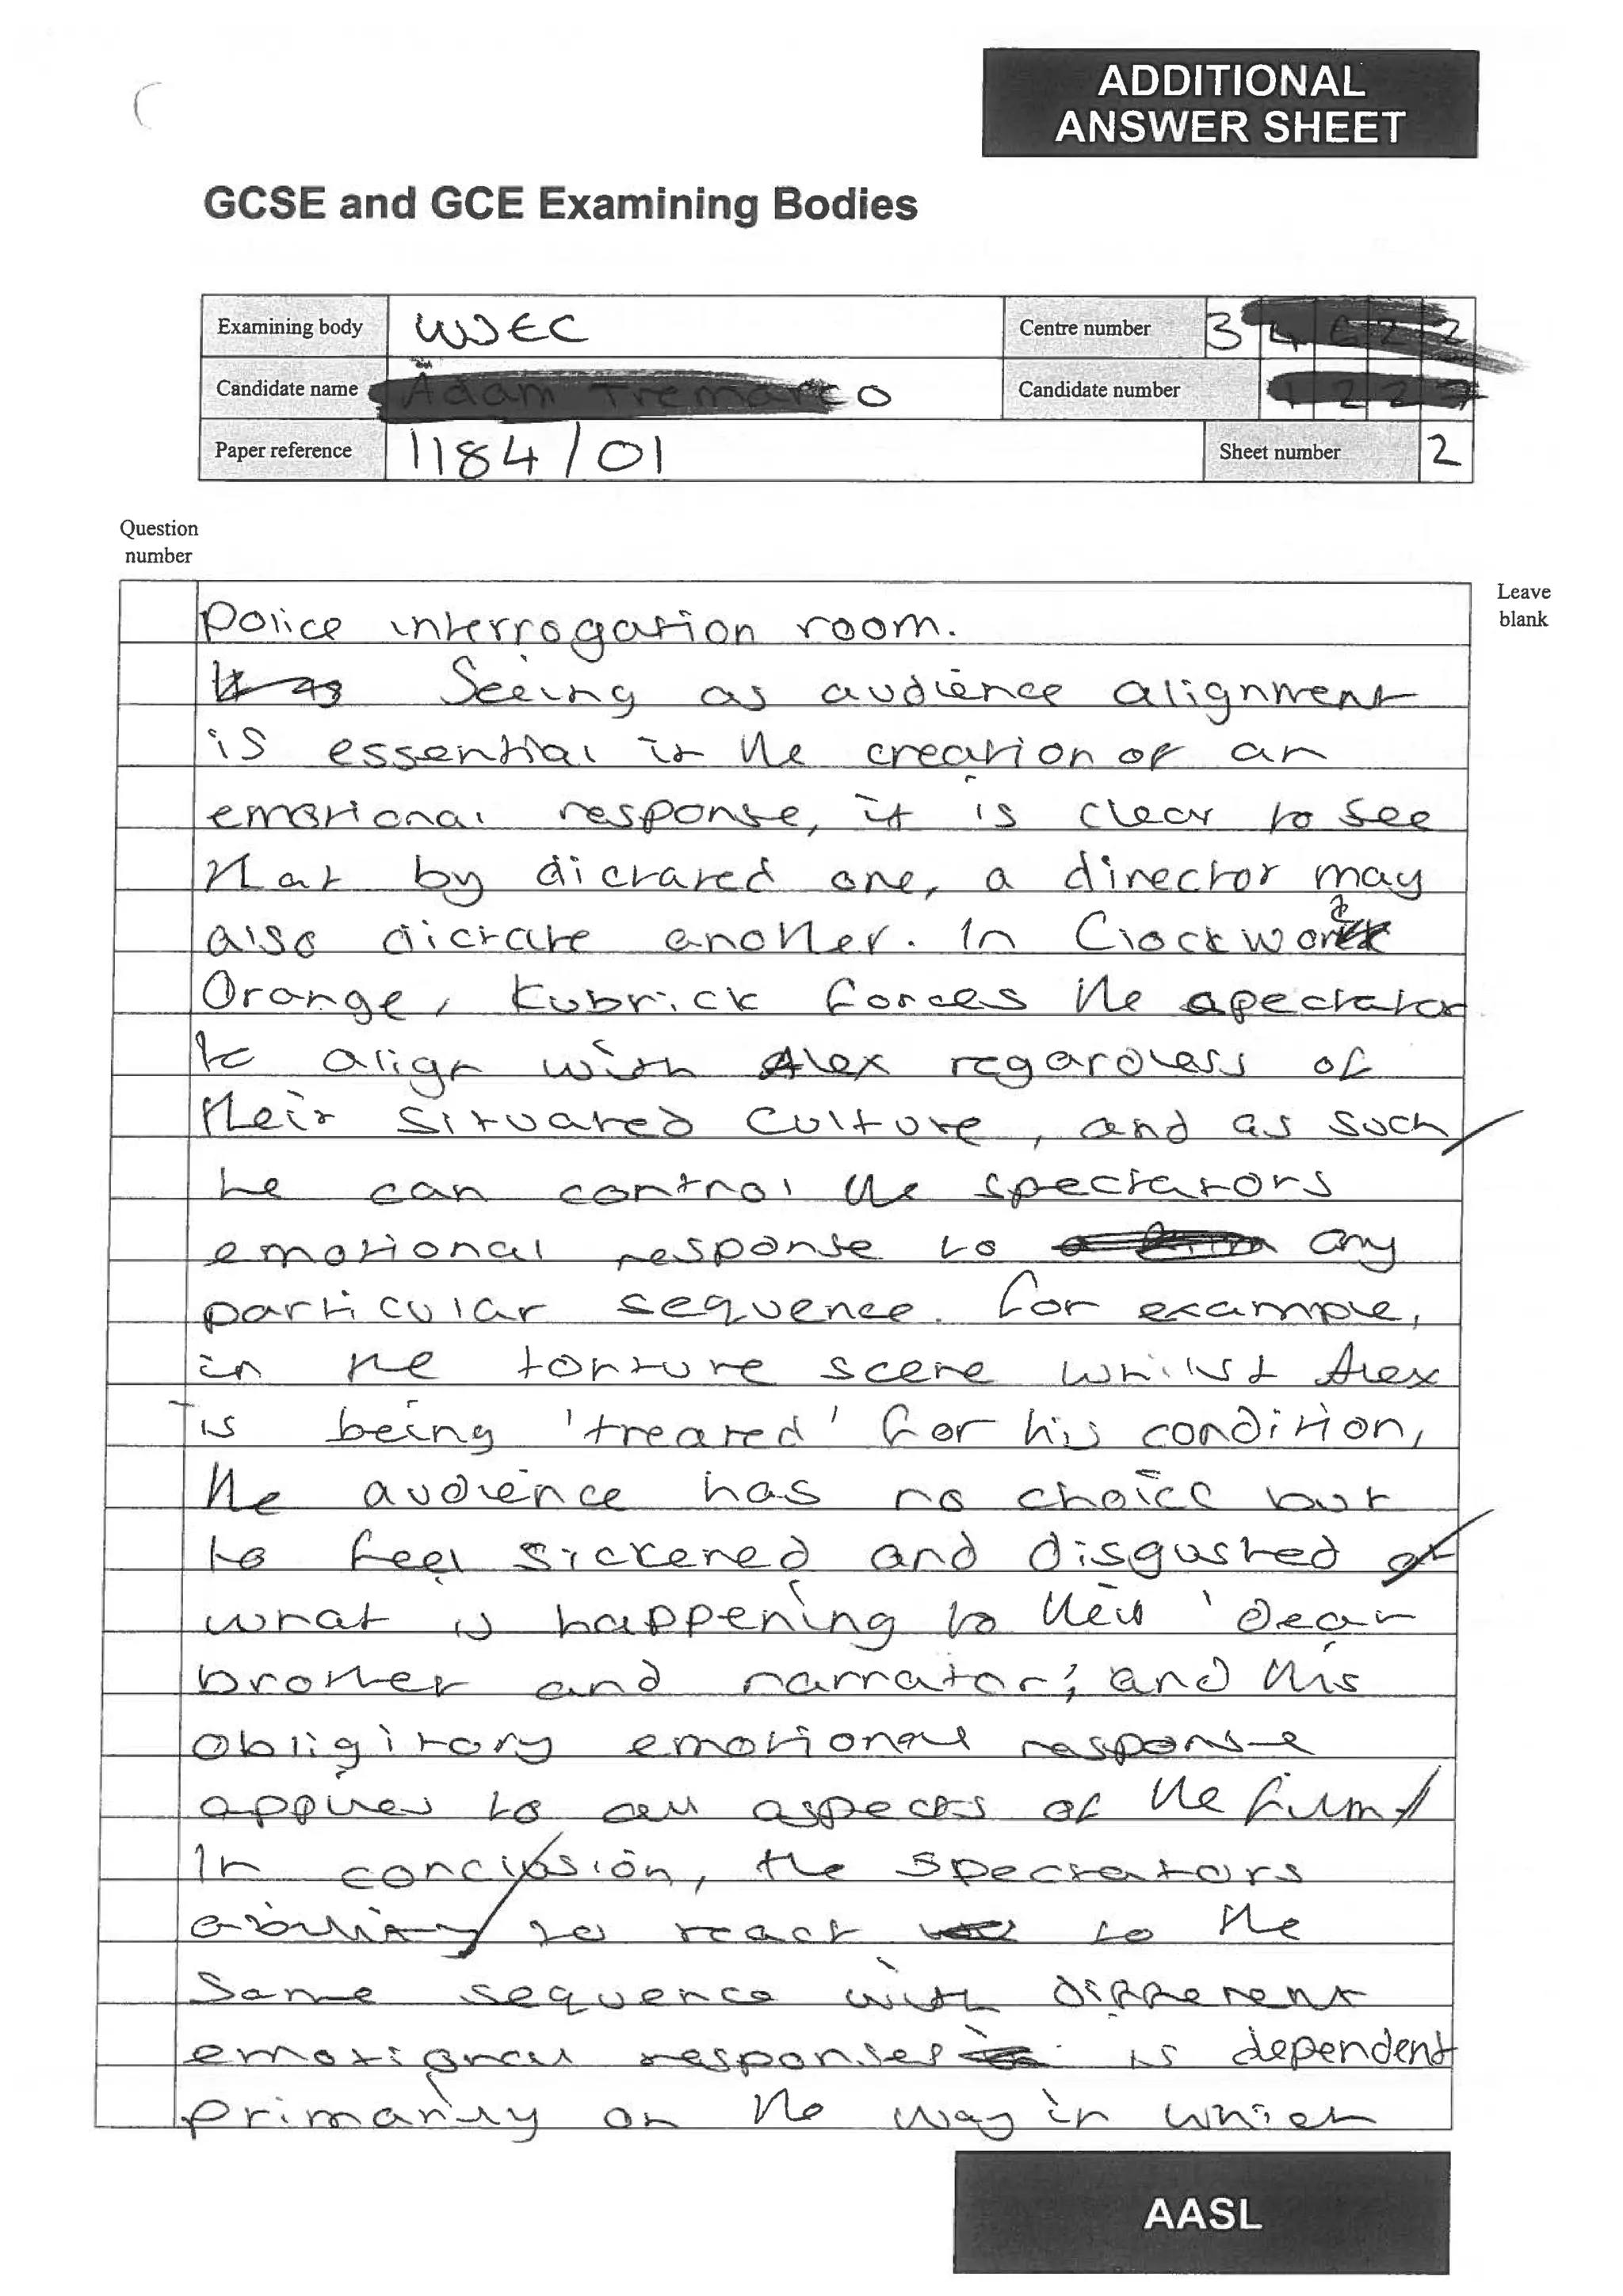 ADDITIONAL
ANSWER SHEET
GCSE and GCE Examining Bodies
Examining body WJEC Centre number 3
Candidate name Candidate number
Paper reference 1184/01 Sheet number 2
Question
number
Leave
blank
police interrogation room.
Seeing as audience alignment
is essential in the creation of an
emotional response, it is clear to see
that by dictated one, a director may
also dictate another. In Clockwork
Orange, Kubrick forces the spectator
to align with Alex regardless of
their situated culture, and as such
he can control the spectators
emotional response to any
particular sequence. For example,
in the torture scene whilst Alex
is being 'treated' for his condition,
the audience has no choice but
to feel sickened and disgusted at
what is happening to their 'dear
brother and narrator', and this
obligitory emotional response
applies to all aspects of the film.
In conclusion, the spectators
ability to react to the
same sequence with different
emotional responses is dependent
primarily on the way in which
AASL